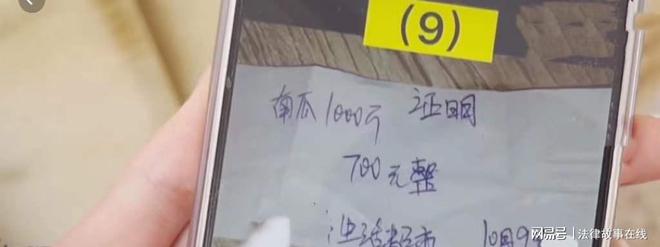 (9)
南瓜1000斤 证明
700元整
10月9
网易号 | 法律故事在线